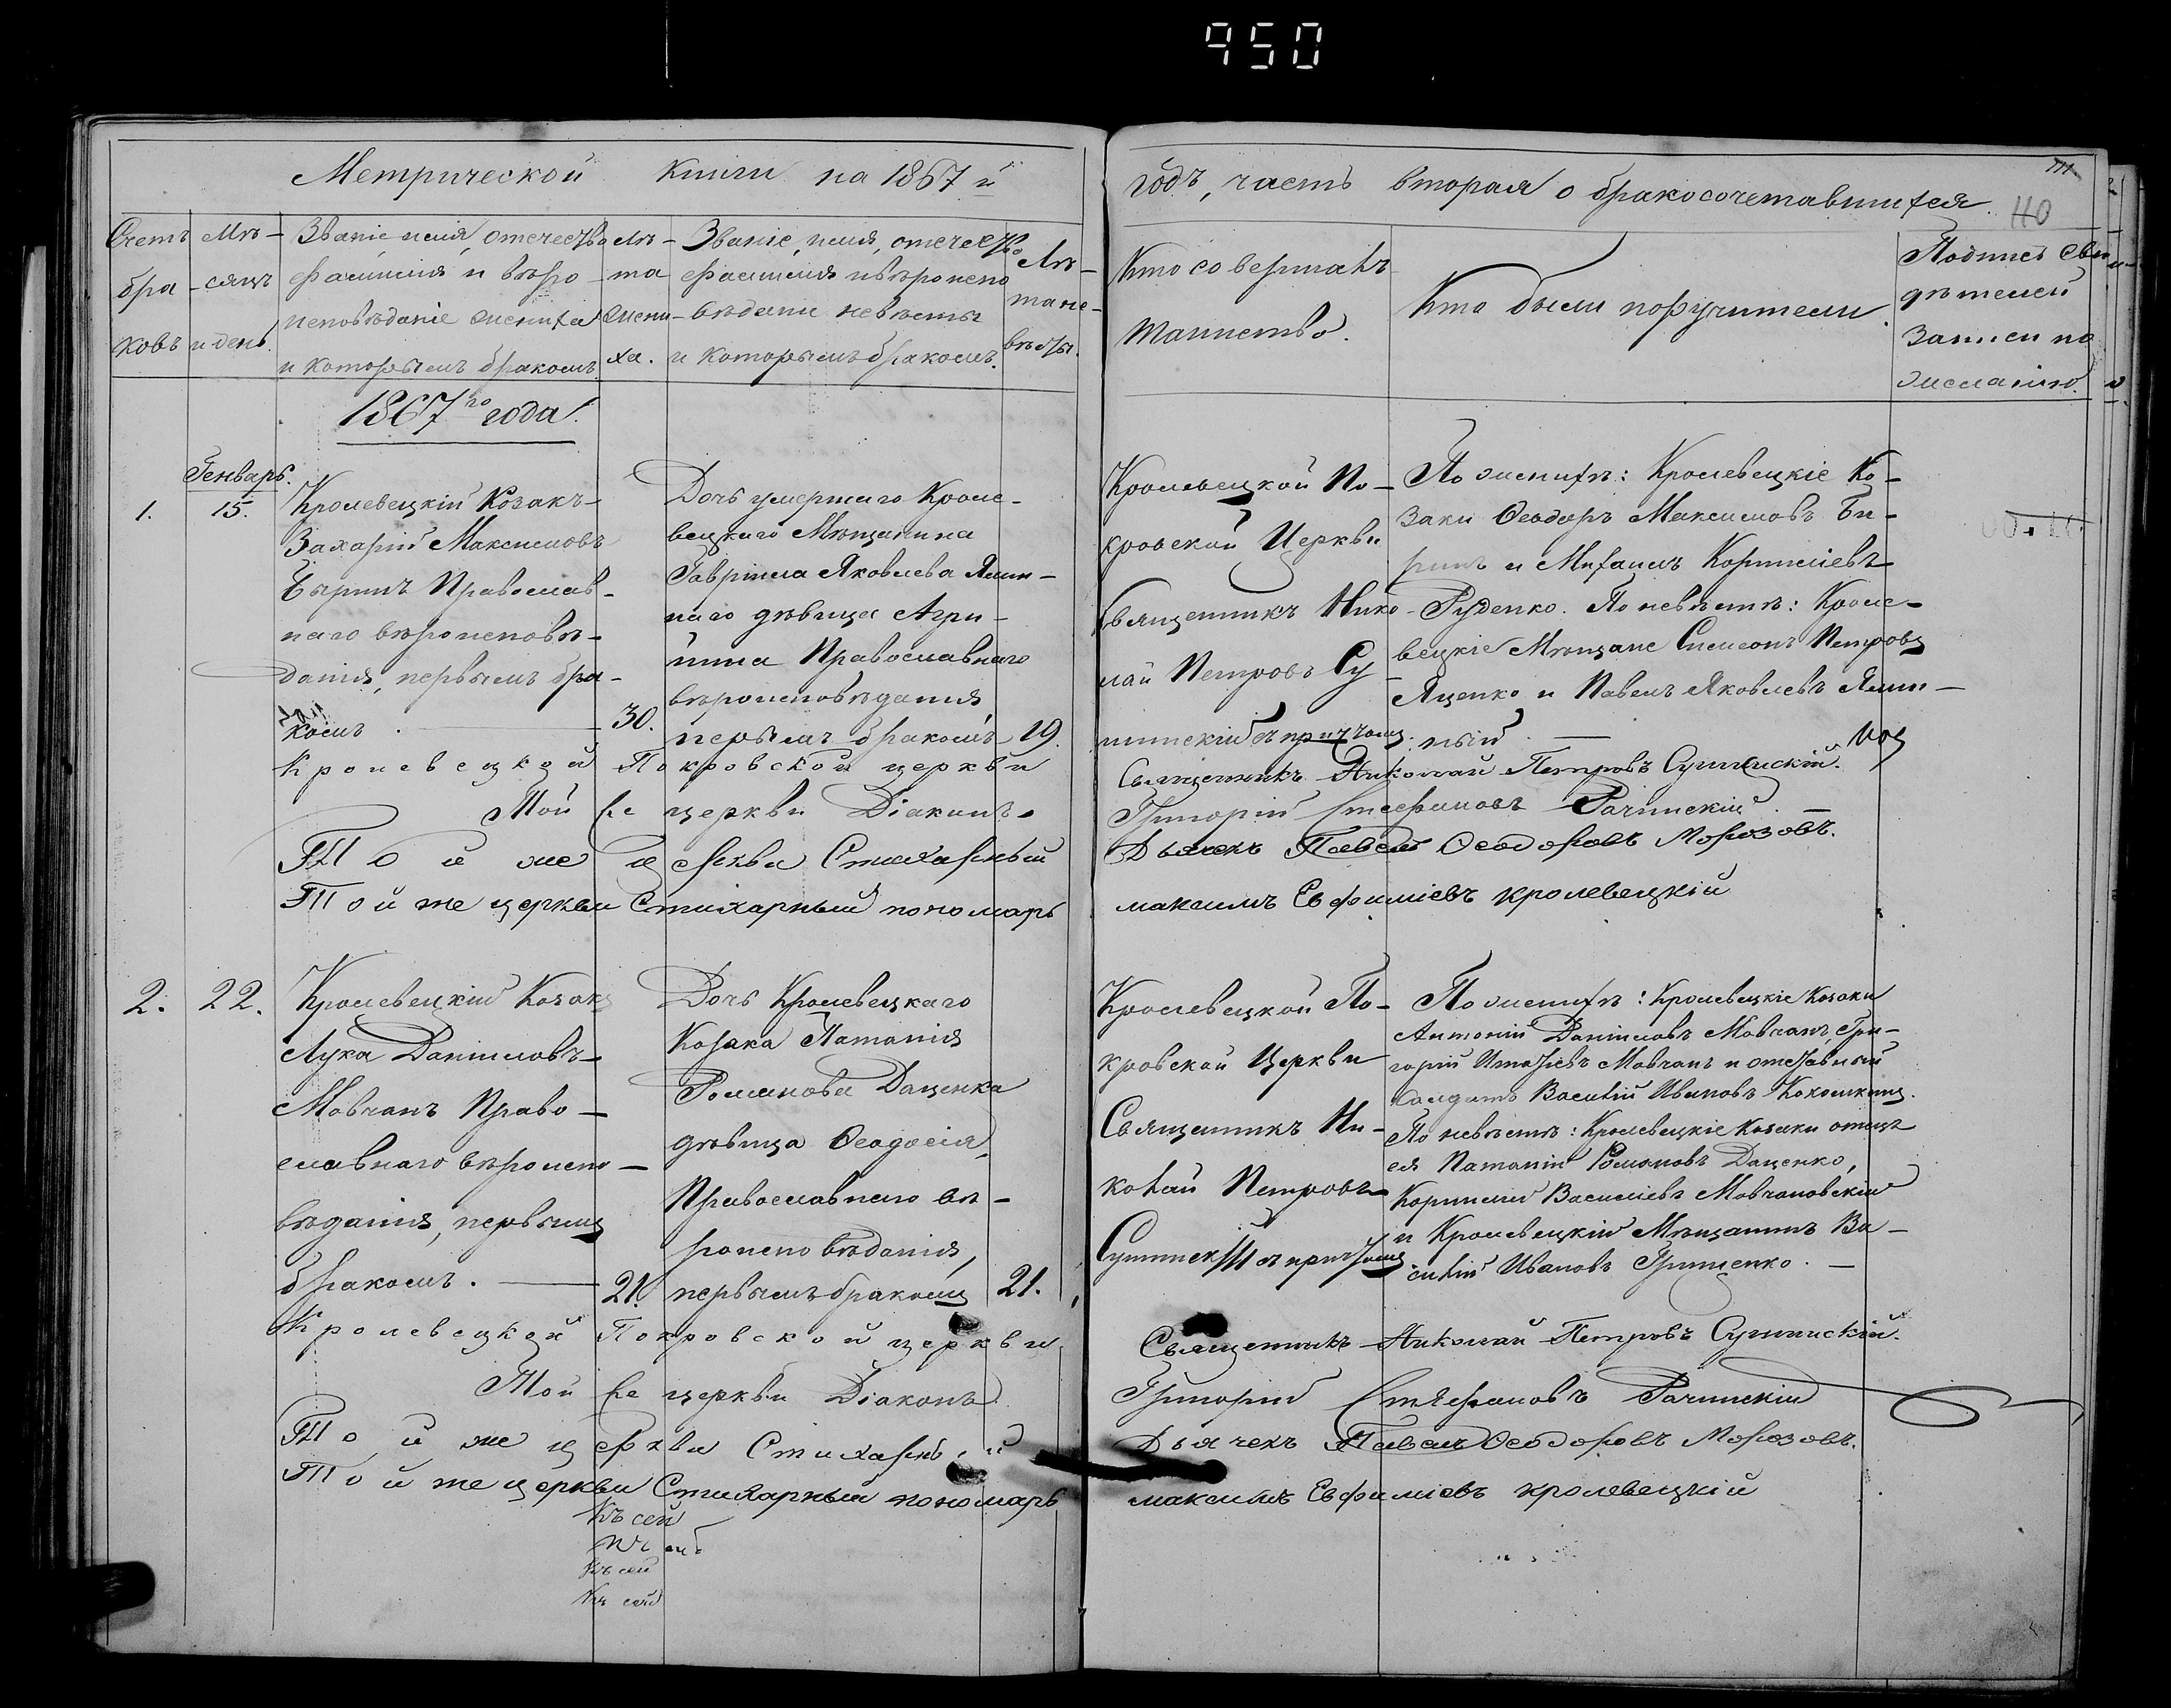 950
Метрической книги на 1867 й
годъ, часть вторая о бракосочетавшихся
110
Счетъ бра-ковъ
Мѣ-сяцъ и день.
Званіе, имя, отечество
фамилія и вѣро
исповѣданіе жениха
и которымъ бракомъ.
Лѣ-
та
жени-
ха.
Званіе, имя, отечество
фамилія и вѣроиспо
вѣданіе невѣсты
и которымъ бракомъ.
Лѣ-
та не-
вѣсты.
Кто совершалъ
таинство.
Кто были поручители.
Подпись сви
дѣтелей
записи по
желанію.
1867го года.
Генварь.
1.
15.
Кролевецкій Козакъ
Захарій Максимовъ
Быринъ Православ-
наго вѣроисповѣ-
данія, первымъ бра-
комъ
30.
Дочь умершаго Кроле-
вецкаго Мѣщанина
Гавріила Яковлева Ямп-
наго дѣвица Агри-
пина Православнаго
вѣроисповѣданія,
первымъ бракомъ
19.
Кролевецкой По-
кровской Церкви
Священникъ Нико-
лай Петровъ Су-
шинскій съ причтомъ
По женихѣ: Кролевецкіе Ко-
заки Ѳеодоръ Максимовъ Би-
ринъ и Михаилъ Корниліевъ
Руденко. По невѣстѣ: Кроле-
вецкіе Мѣщане Симеонъ Петровъ
Яценко и Павелъ Яковлевъ Ямп-
ный
Кролевецкой Покровской церкви
Священникъ Николай Петровъ Сушинскій.
Той же церкви Діаконъ
Григорій Стефановъ Рачинскій.
Той же церкви Стихарный
Дьячекъ Павелъ Ѳеодоровъ Морозовъ.
Той же церкви Стихарный пономарь
максимъ Евфиміевъ кролевецкій
2.
22.
Кролевецкій Козакъ
Лука Даніиловъ
Мовчанъ Право-
славнаго вѣроиспо-
вѣданія, первымъ
бракомъ.
21.
Дочь Кролевецкаго
Козака Патапія
Романова Даценка
дѣвица Ѳеодосія,
Православнаго вѣ-
роисповѣданія,
первымъ бракомъ
21.
Кролевецкой По-
кровской Церкви
Священникъ Ни-
колай Петровъ
Сушинскій съ причтомъ
По женихѣ: Кролевецкіе Козаки
Антоній Даніиловъ Мовчанъ, Гри-
горій Мовчанъ и отставный
солдатъ Василій Ивановъ Кокошкинъ.
По невѣстѣ: Кролевецкіе Козаки отецъ
ея Патапій Романовъ Даценко,
Корнилій Василіевъ Мовчановскій
и Кролевецкій Мѣщанинъ Ва-
силій Ивановъ Грищенко.
Кролевецкой Покровской церкви
Священникъ Николай Петровъ Сушинскій.
Той же церкви Діаконъ
Григорій Стефановъ Рачинскій
Той же церкви Стихарный
Дьячекъ Павелъ Ѳеодоровъ Морозовъ.
Той же церкви Стихарный пономарь
максимъ Евфиміевъ кролевецкій
Къ сей
Къ сей
Къ сей